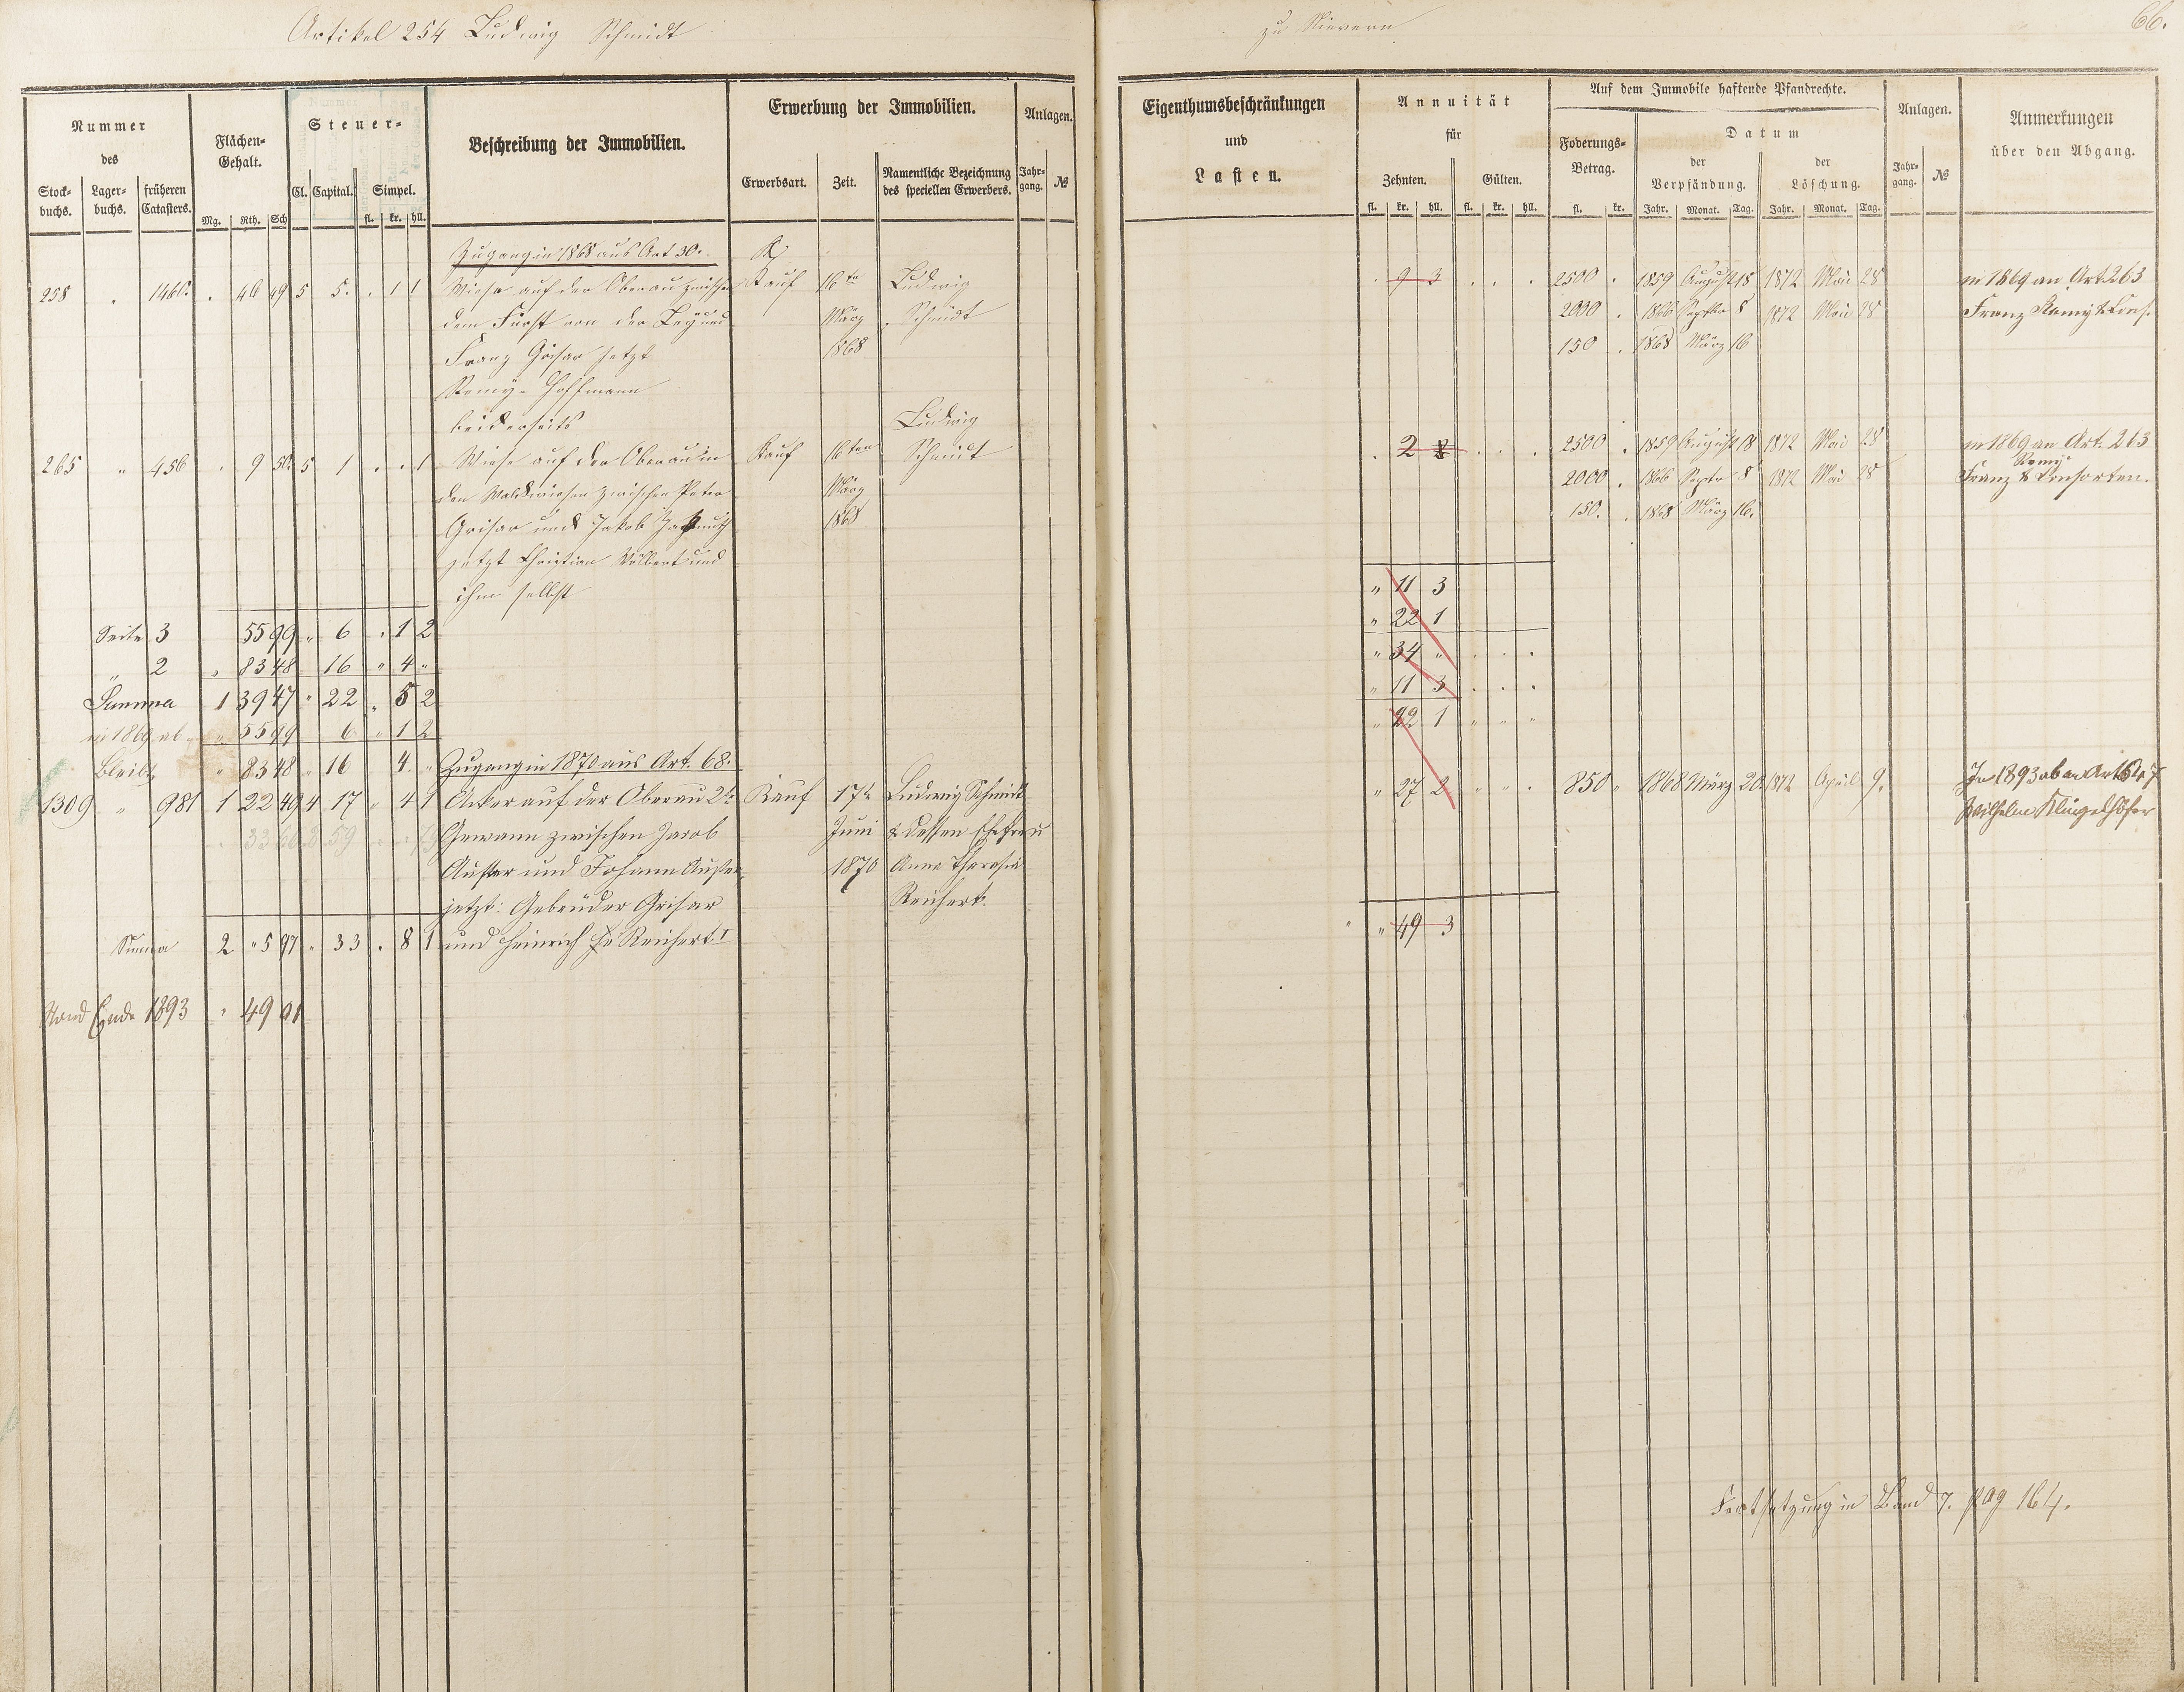 Artikel 254 Ludwig Schmidt
zu Nievern
66.
Nummer des
Stock-buchs. Lager-buchs. früheren Catasters.
Flächen-Gehalt.
Mg. Rth. Sch
Steuer-
Cl. Capital. Simpel.
fl. kr. hll.
Beschreibung der Immobilien.
Erwerbung der Immobilien.
Erwerbsart. Zeit. Namentliche Bezeichnung des speciellen Erwerbers.
Anlagen.
Jahr-gang. №
Eigenthumsbeschränkungen
und
Lasten.
Annuität
für
Zehnten. Gülten.
fl. kr. hll. fl. kr. hll.
Auf dem Immobile haftende Pfandrechte.
Foderungs-Betrag.
fl. kr.
Datum
der Verpfändung. der Löschung.
Jahr. Monat. Tag. Jahr. Monat. Tag.
Anlagen.
Jahr-gang. №
Anmerkungen
über den Abgang.
Zugang in 1868 aus Art 30.
258 1460. 46 49 5 5. 1 1 Wiese auf der Oberau zwischen Kauf 16ten Ludwig 9 3 2500 1859 August 18 1872 Mai 28 in 1869 an Art. 263
dem Fürst von der Leyen und März Schmidt 2000 1866 Septbr 8 1872 Mai 28 Franz Remy & Cons.
Franz Grisar jetzt 1868 150 1868 März 16
Remy-Hoffmann
beiderseits Ludwig
265 " 456 9 50 5 1 1 Wiese auf der Oberau in Kauf 16ten Schmidt 2 2500 1859 August 18 1872 Mai 28 in 1869 an Art. 263
den Waldwiesen zwischen Peter März 2000 1866 Septr 8 1872 Mai 28 Franz Remy & Consorten.
Grisar und Jakob 1868 150. 1868 März 16.
jetzt Christian Volbert und
ihm selbst " 11 3
Seite 3 55 99 " 6 1 2 " 22 1
" 2 " 83 48 16 " 4 " " 34 "
Summa 1 39 47 " 22 " 5 2 " 11 3
in 1869 ab " 55 99 6 " 1 2 " 22 1
Bleibt " 83 48 " 16 4. " Zugang in 1870 aus Art. 68.
1309 " 981 1 22 49 4 17 " 4 1 Acker auf der Oberau 2te Kauf 17te Ludwig Schmidt " 27 2 850 " 1868 März 20 1872 April 9. In 1893 ab an Art 547
Gewann zwischen Jacob Juni & dessen Ehefrau Wilhelm Klingelhöfer
Auster und Johann Auster 1870 Anna Theresia
jetzt: Gebrüder Grisar Reichert.
Summa 2 " 5 97 " 33 . 8 1 und Heinrich Reichert I " 49 3
Stand Ende 1893 " 49 91
Fortsetzung in Band 7. pag 164.